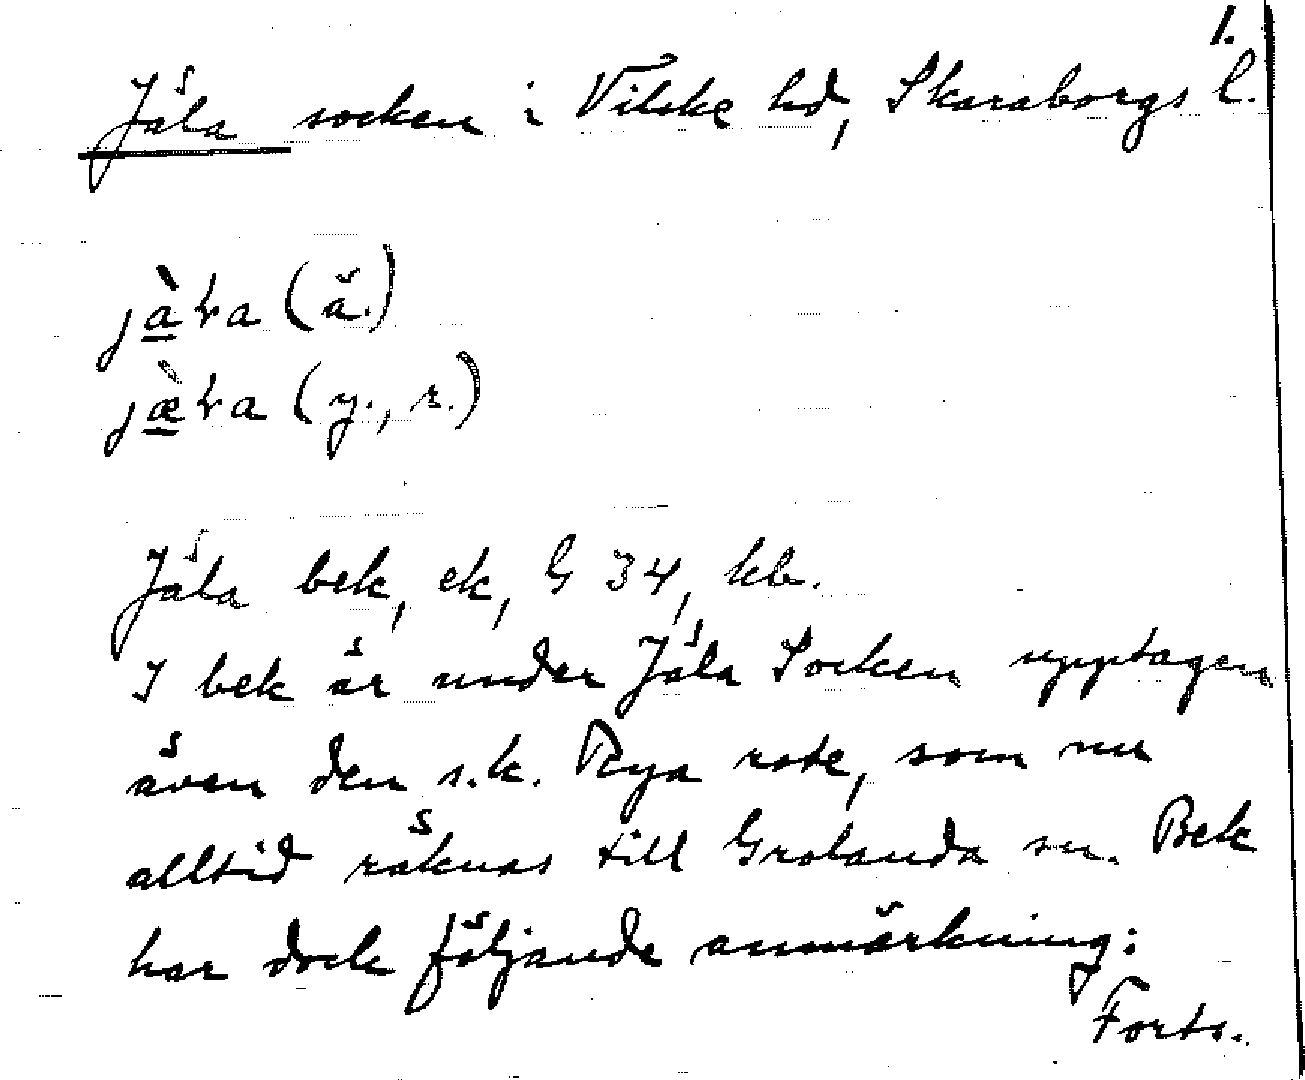 1.
Jäla socken i Vilske hd, Skaraborgs l.
jàɽa (ä.)
jæ̀ɽa (y., r.)
Jäla bek, ek, G 34, kb.
I bek är under Jäla Socken upptagen
även den s.k. Rya rote, som nu
alltid räknas till Grolanda sn. Bek
har dock följande anmärkning:
Forts.